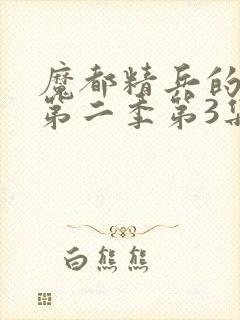 魔都精兵的
第二季第3集
白熊熊